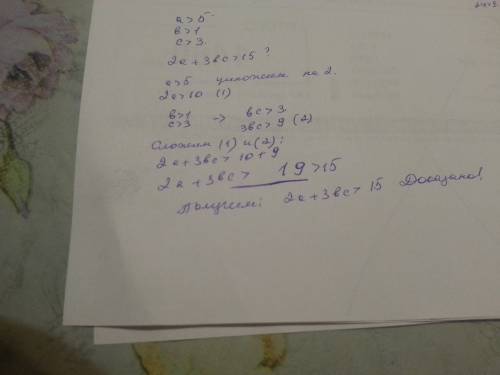 a>5
b>1
c>3.
2a+3bc>15?
a>5 умножаем на 2.
2a>10 (1)
b>1 → bc>3
c>3 3bc>9 (2)
Сложим (1) и (2):
2a+3bc>10+9
2a+3bc> 19>15
Получаем: 2a+3bc>15 Доказано!